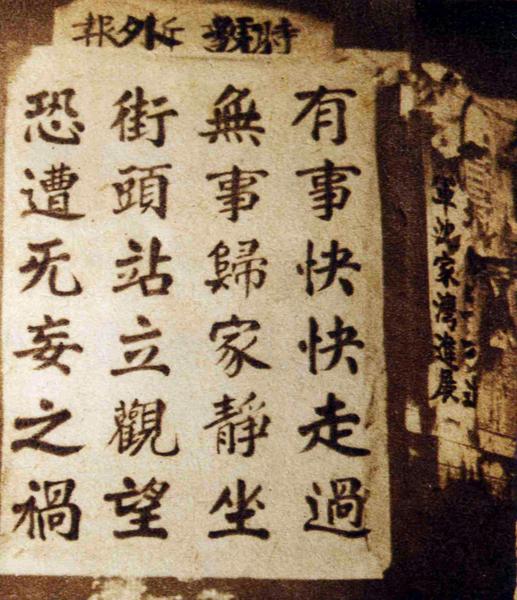 時號外報
有事快快走過
無事歸家靜坐
街頭站立觀望
恐遭无妄之禍
軍沈家灣進展